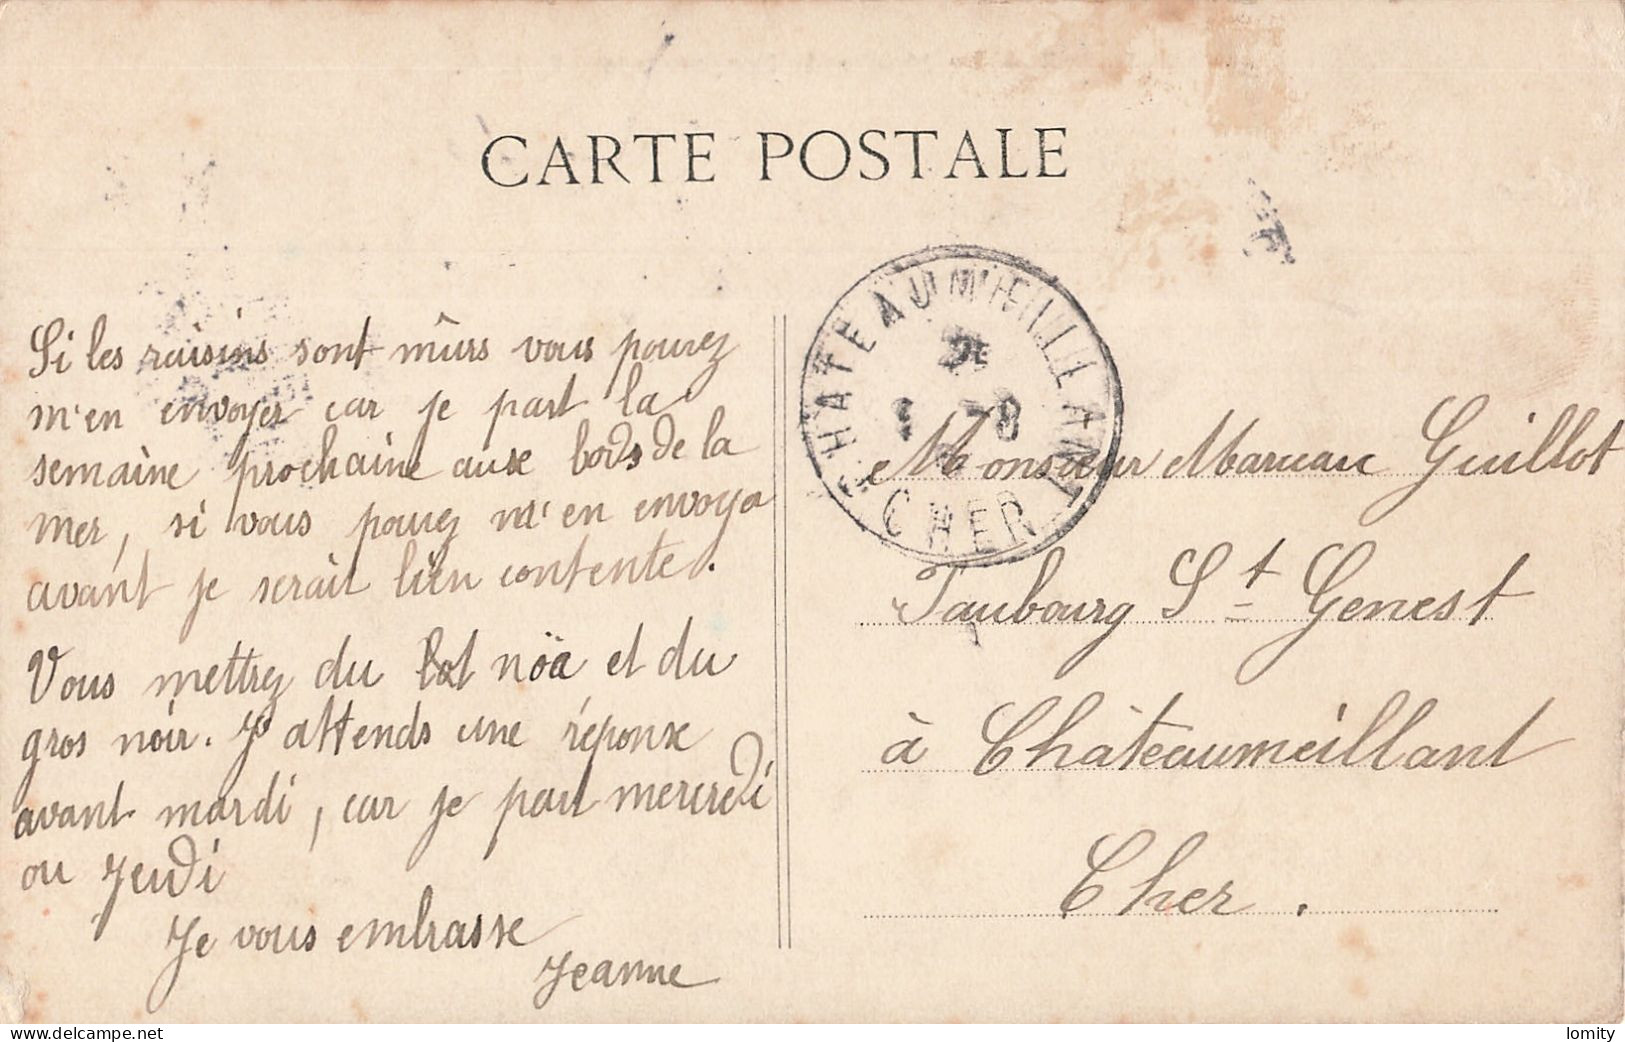 CARTE POSTALE
CHATEAUMEILLANT
CHER
Si les raisins sont mûrs vous pouvez
m'en envoyer car je part la
semaine prochaine aux bords de la
mer, si vous pouvez m'en envoya
avant je serait bien contente.
Vous mettrez du et du
gros noir. J'attends une réponse
avant mardi, car je part mercredi
ou Jeudi
Je vous embrasse
Jeanne
Monsieur Guillot
Faubourg St Genest
à Châteaumeillant
Cher.
lomity